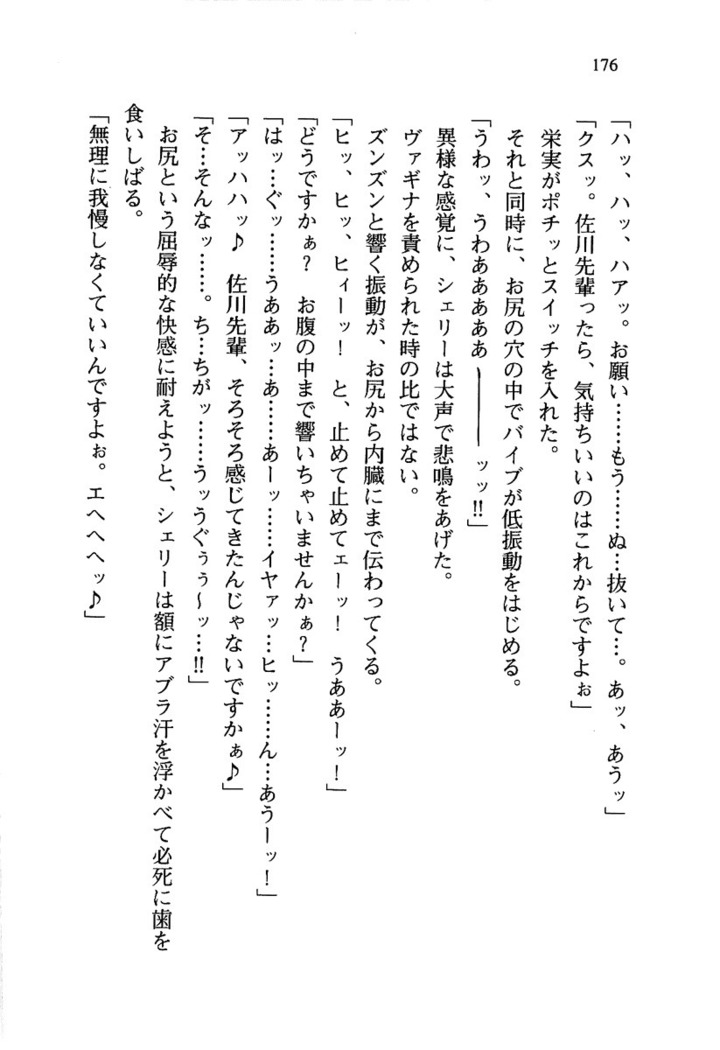 176
「ハッ、ハッ、ハアッ。お願い……もう……ぬ…抜いて…。あッ、あうッ」
「クスッ。佐川先輩ったら、気持ちいいのはこれからですよぉ」
栄実がポチッとスイッチを入れた。
それと同時に、お尻の穴の中でバイブが低振動をはじめる。
「うわッ、うわあああああ――――ッッ!!」
異様な感覚に、シェリーは大声で悲鳴をあげた。
ヴァギナを責められた時の比ではない。
ズンズンと響く振動が、お尻から内臓にまで伝わってくる。
「ヒッ、ヒッ、ヒィーッ！　と、止めて止めてェーッ！　うああーッ！」
「どうですかぁ？　お腹の中まで響いちゃいませんかぁ？」
「はッ…ぐッ……うああッ…あ……あーッ……イヤァッ…ヒッ……ん…あうーッ！」
「アッハハッ♪　佐川先輩、そろそろ感じてきたんじゃないですかぁ♪」
「そ…そんなッ……。ち…ちがッ……うッうぐぅぅ～ッ…!!」
お尻という屈辱的な快感に耐えようと、シェリーは額にアブラ汗を浮かべて必死に歯を
食いしばる。
「無理に我慢しなくていいんですよぉ。エヘヘヘッ♪」